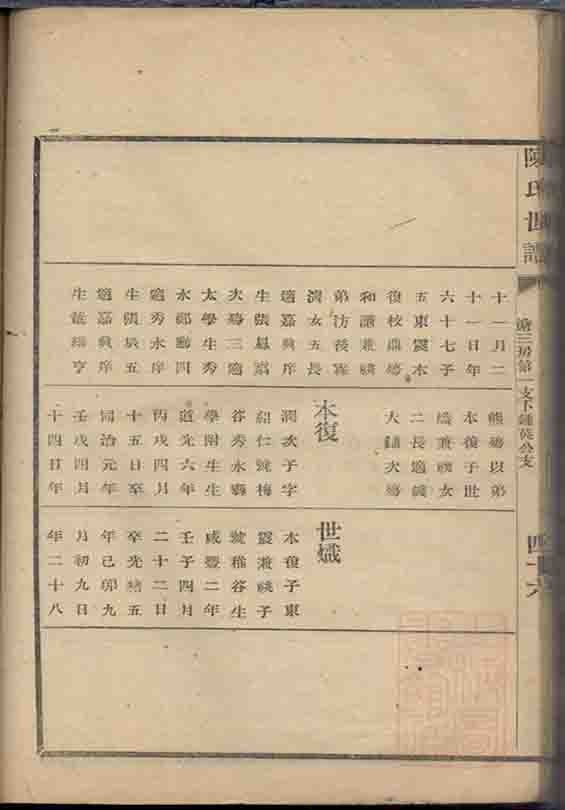 陳氏世譜
三房第一支下鍾英公支
四十六
十一月二
十一日年
六十七子
五東震本
復校鼎殤
和謙兼祧
弟汸後霖
濟女五長
適嘉興庠
生張
次殤三適
太學生秀
水鄒勳四
適秀水庠
生張辰五
適嘉興庠
生盛亨
熊殤以弟
本復子世
熾兼祧女
二長適
大鏞次殤
本復
潤次子字
紹仁號梅
谷秀水縣
學附生生
道光六年
丙戌四月
十五日卒
同治元年
壬戌四月
十四日年
世熾
本復子東
震兼祧子
號稚谷生
咸豐二年
壬子四月
二十二日
卒光緒五
年己卯九
月初九日
年二十八